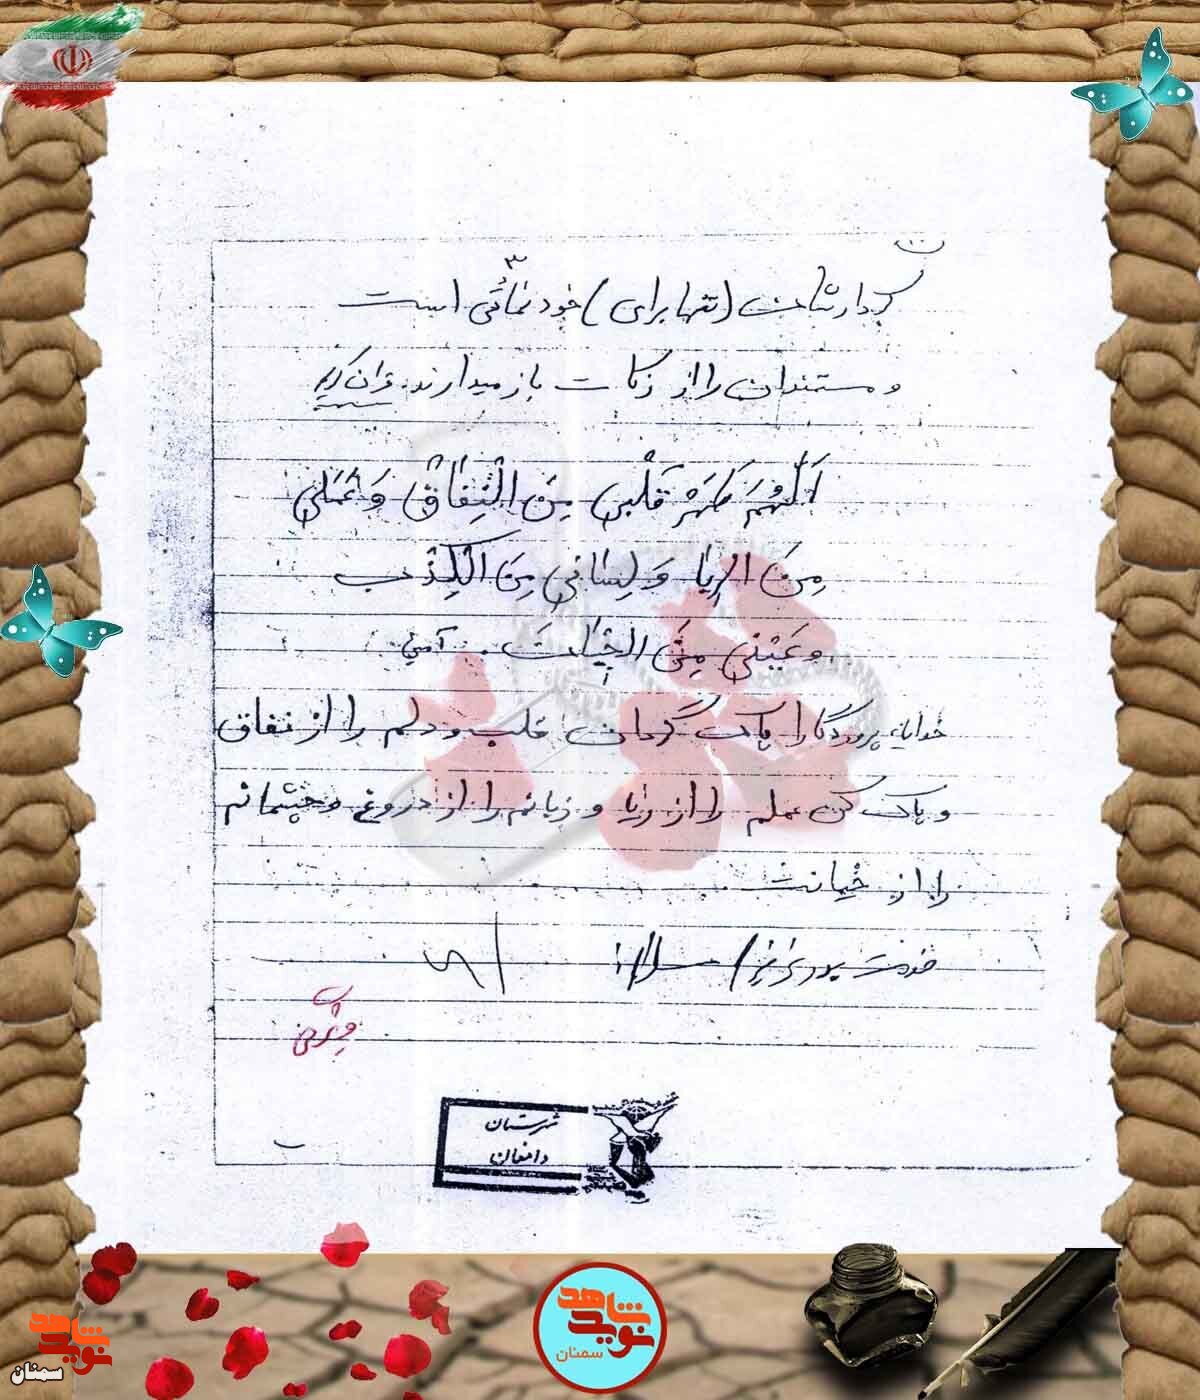 ۳
کردارشان (تنها برای) خودنمائی است
و مستمندان را از زکات باز میدارند. قران کریم
اَللّهُمَ طَهِرْ قَلْبی مِنَ الْنِفاق وَ عَمَلی
مِنَ الریا وَ لِسانی مِنَ الْکِذْب
وَ عَیْنی مِنَ الخیانت. آمین
خدایا، پروردگارا پاک گردان قلب و دلم را از نفاق
و پاک کن عملم را از ریا و زبانم را از دروغ و چشمانم
را از خیانت
شهرستان
دامغان
نوید شاهد
سمنان
نوید شاهد
سمنان